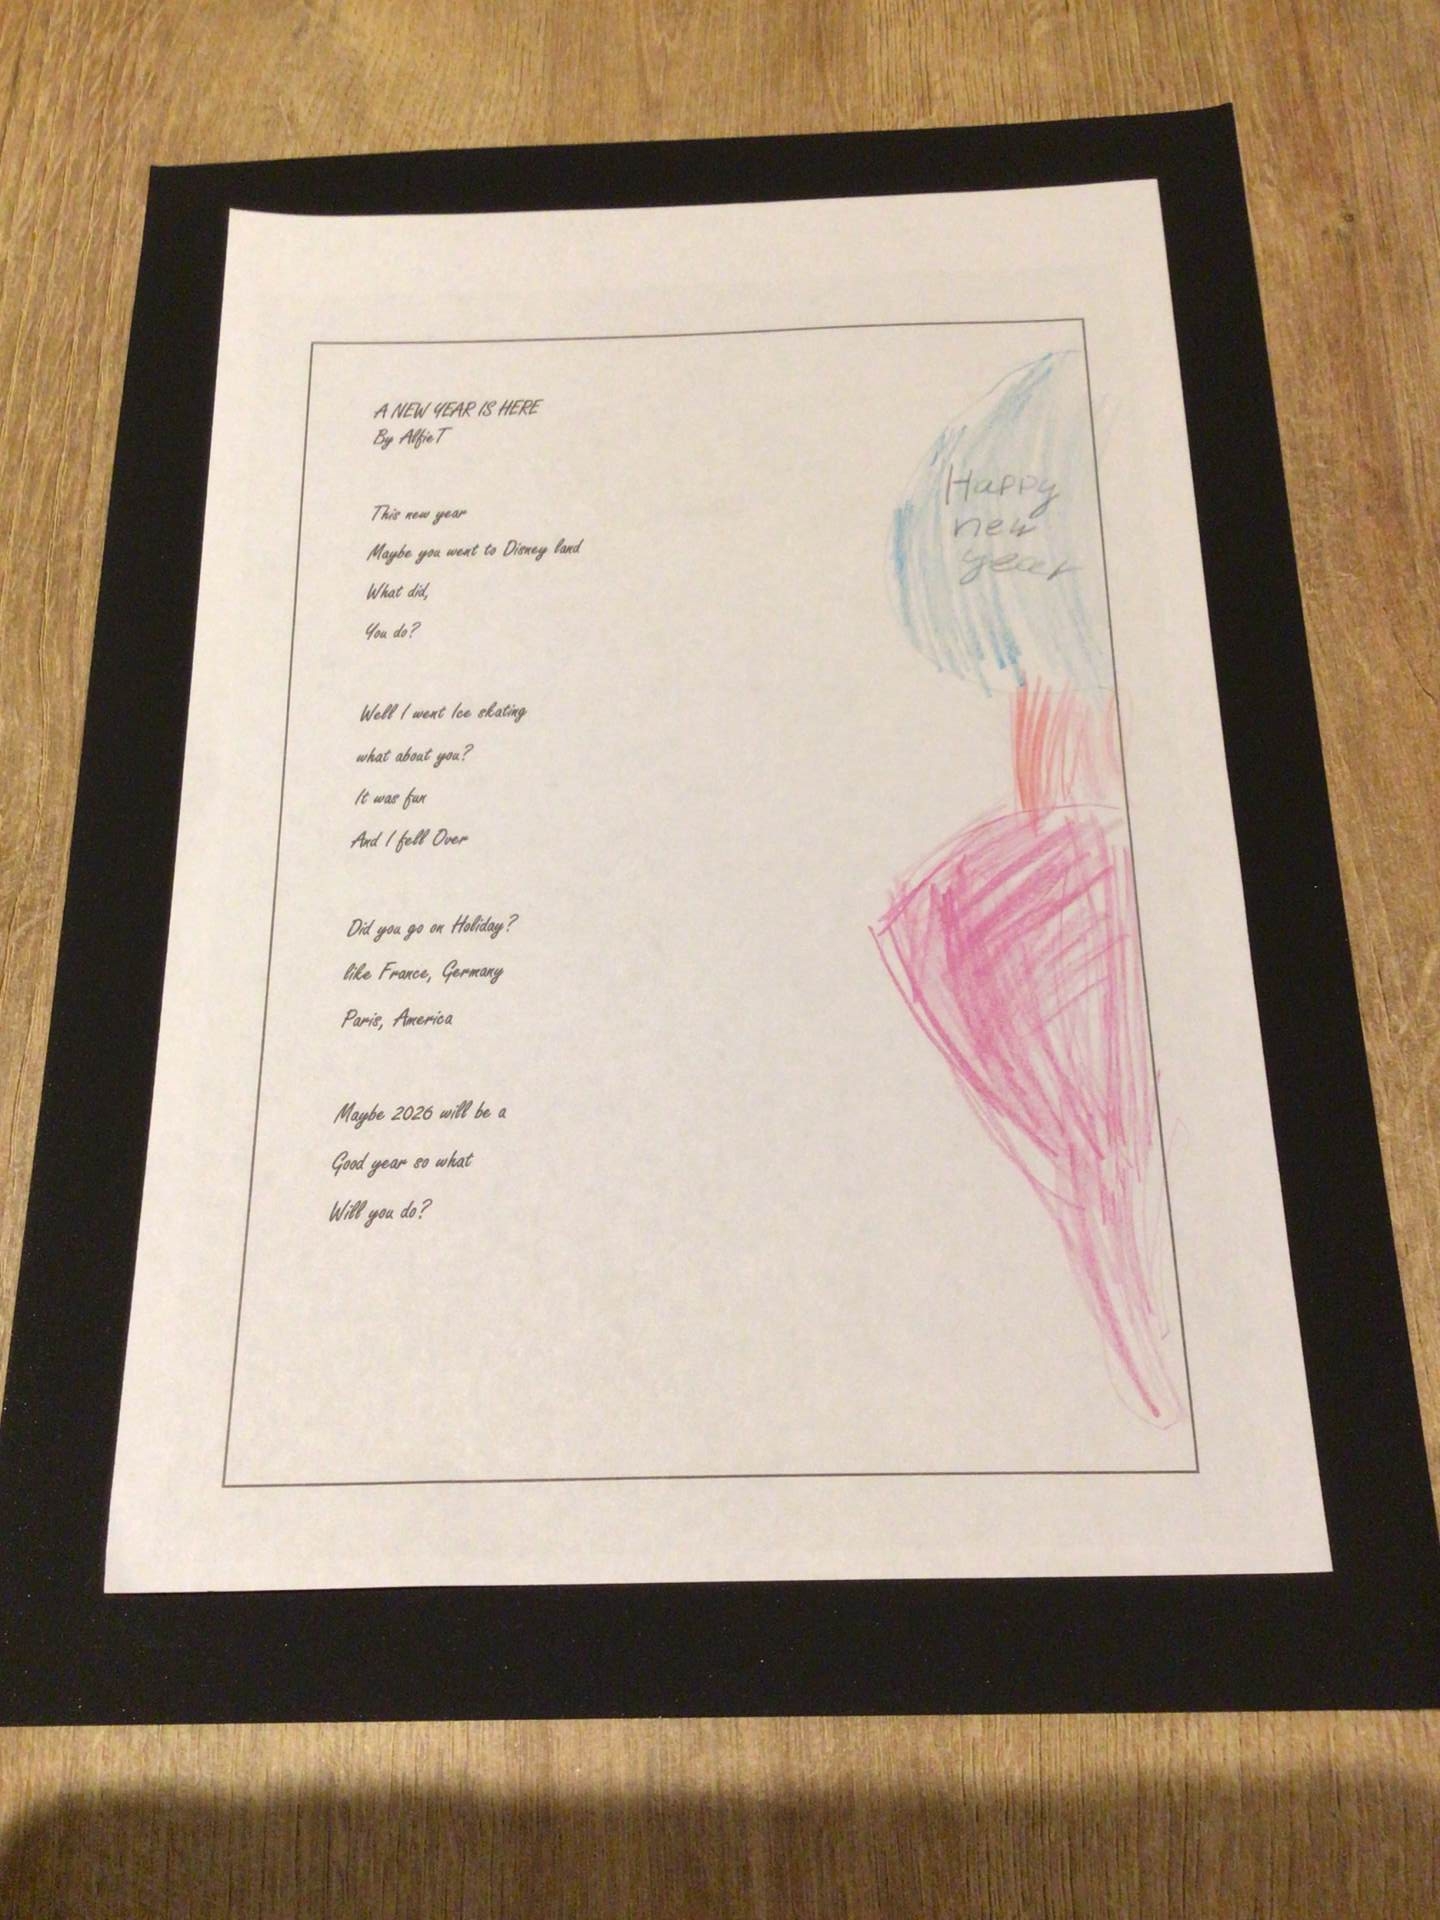 A NEW YEAR IS HERE
By AlfieT
This new year
Maybe you went to Disney land
What did,
You do?
Well I went Ice skating
what about you?
It was fun
And I fell Over
Did you go on Holiday?
like France, Germany
Paris, America
Maybe 2026 will be a
Good year so what
Will you do?
Happy
new
year